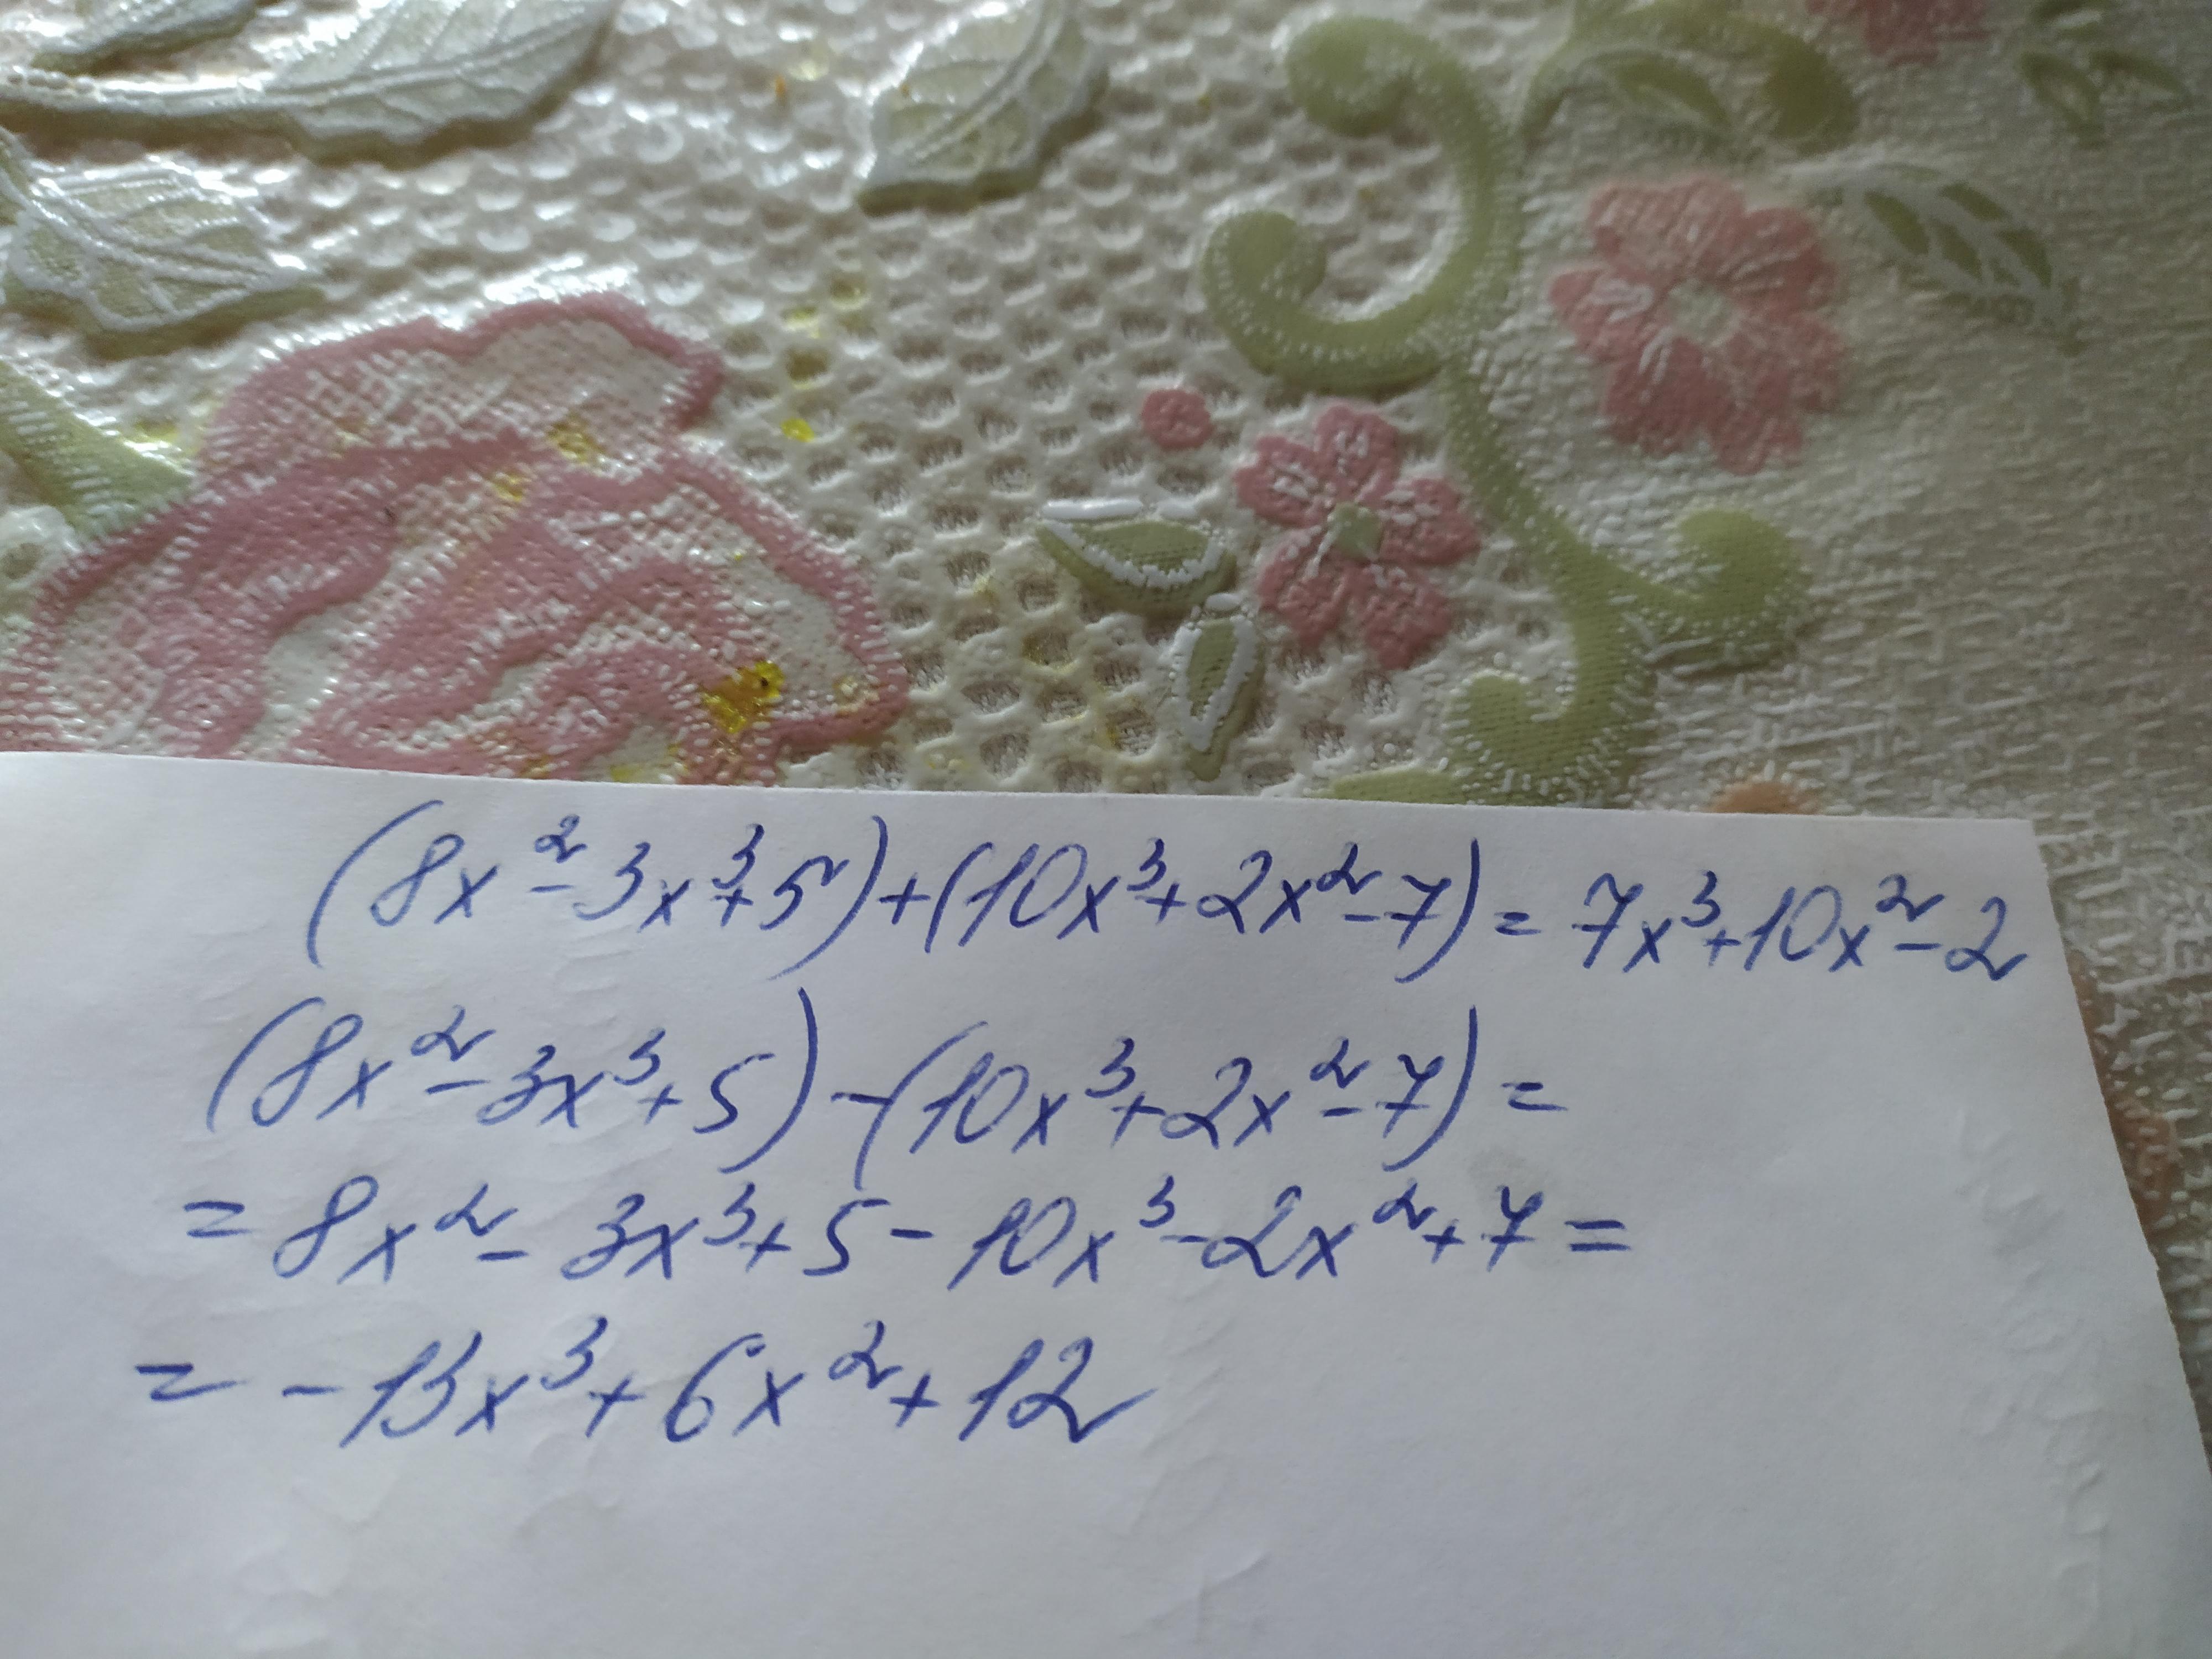 (8x²-3x³+5)+(10x³+2x²-7)=7x³+10x²-2
(8x²-3x³+5)-(10x³+2x²-7)=
=8x²-3x³+5-10x³-2x²+7=
=-13x³+6x²+12